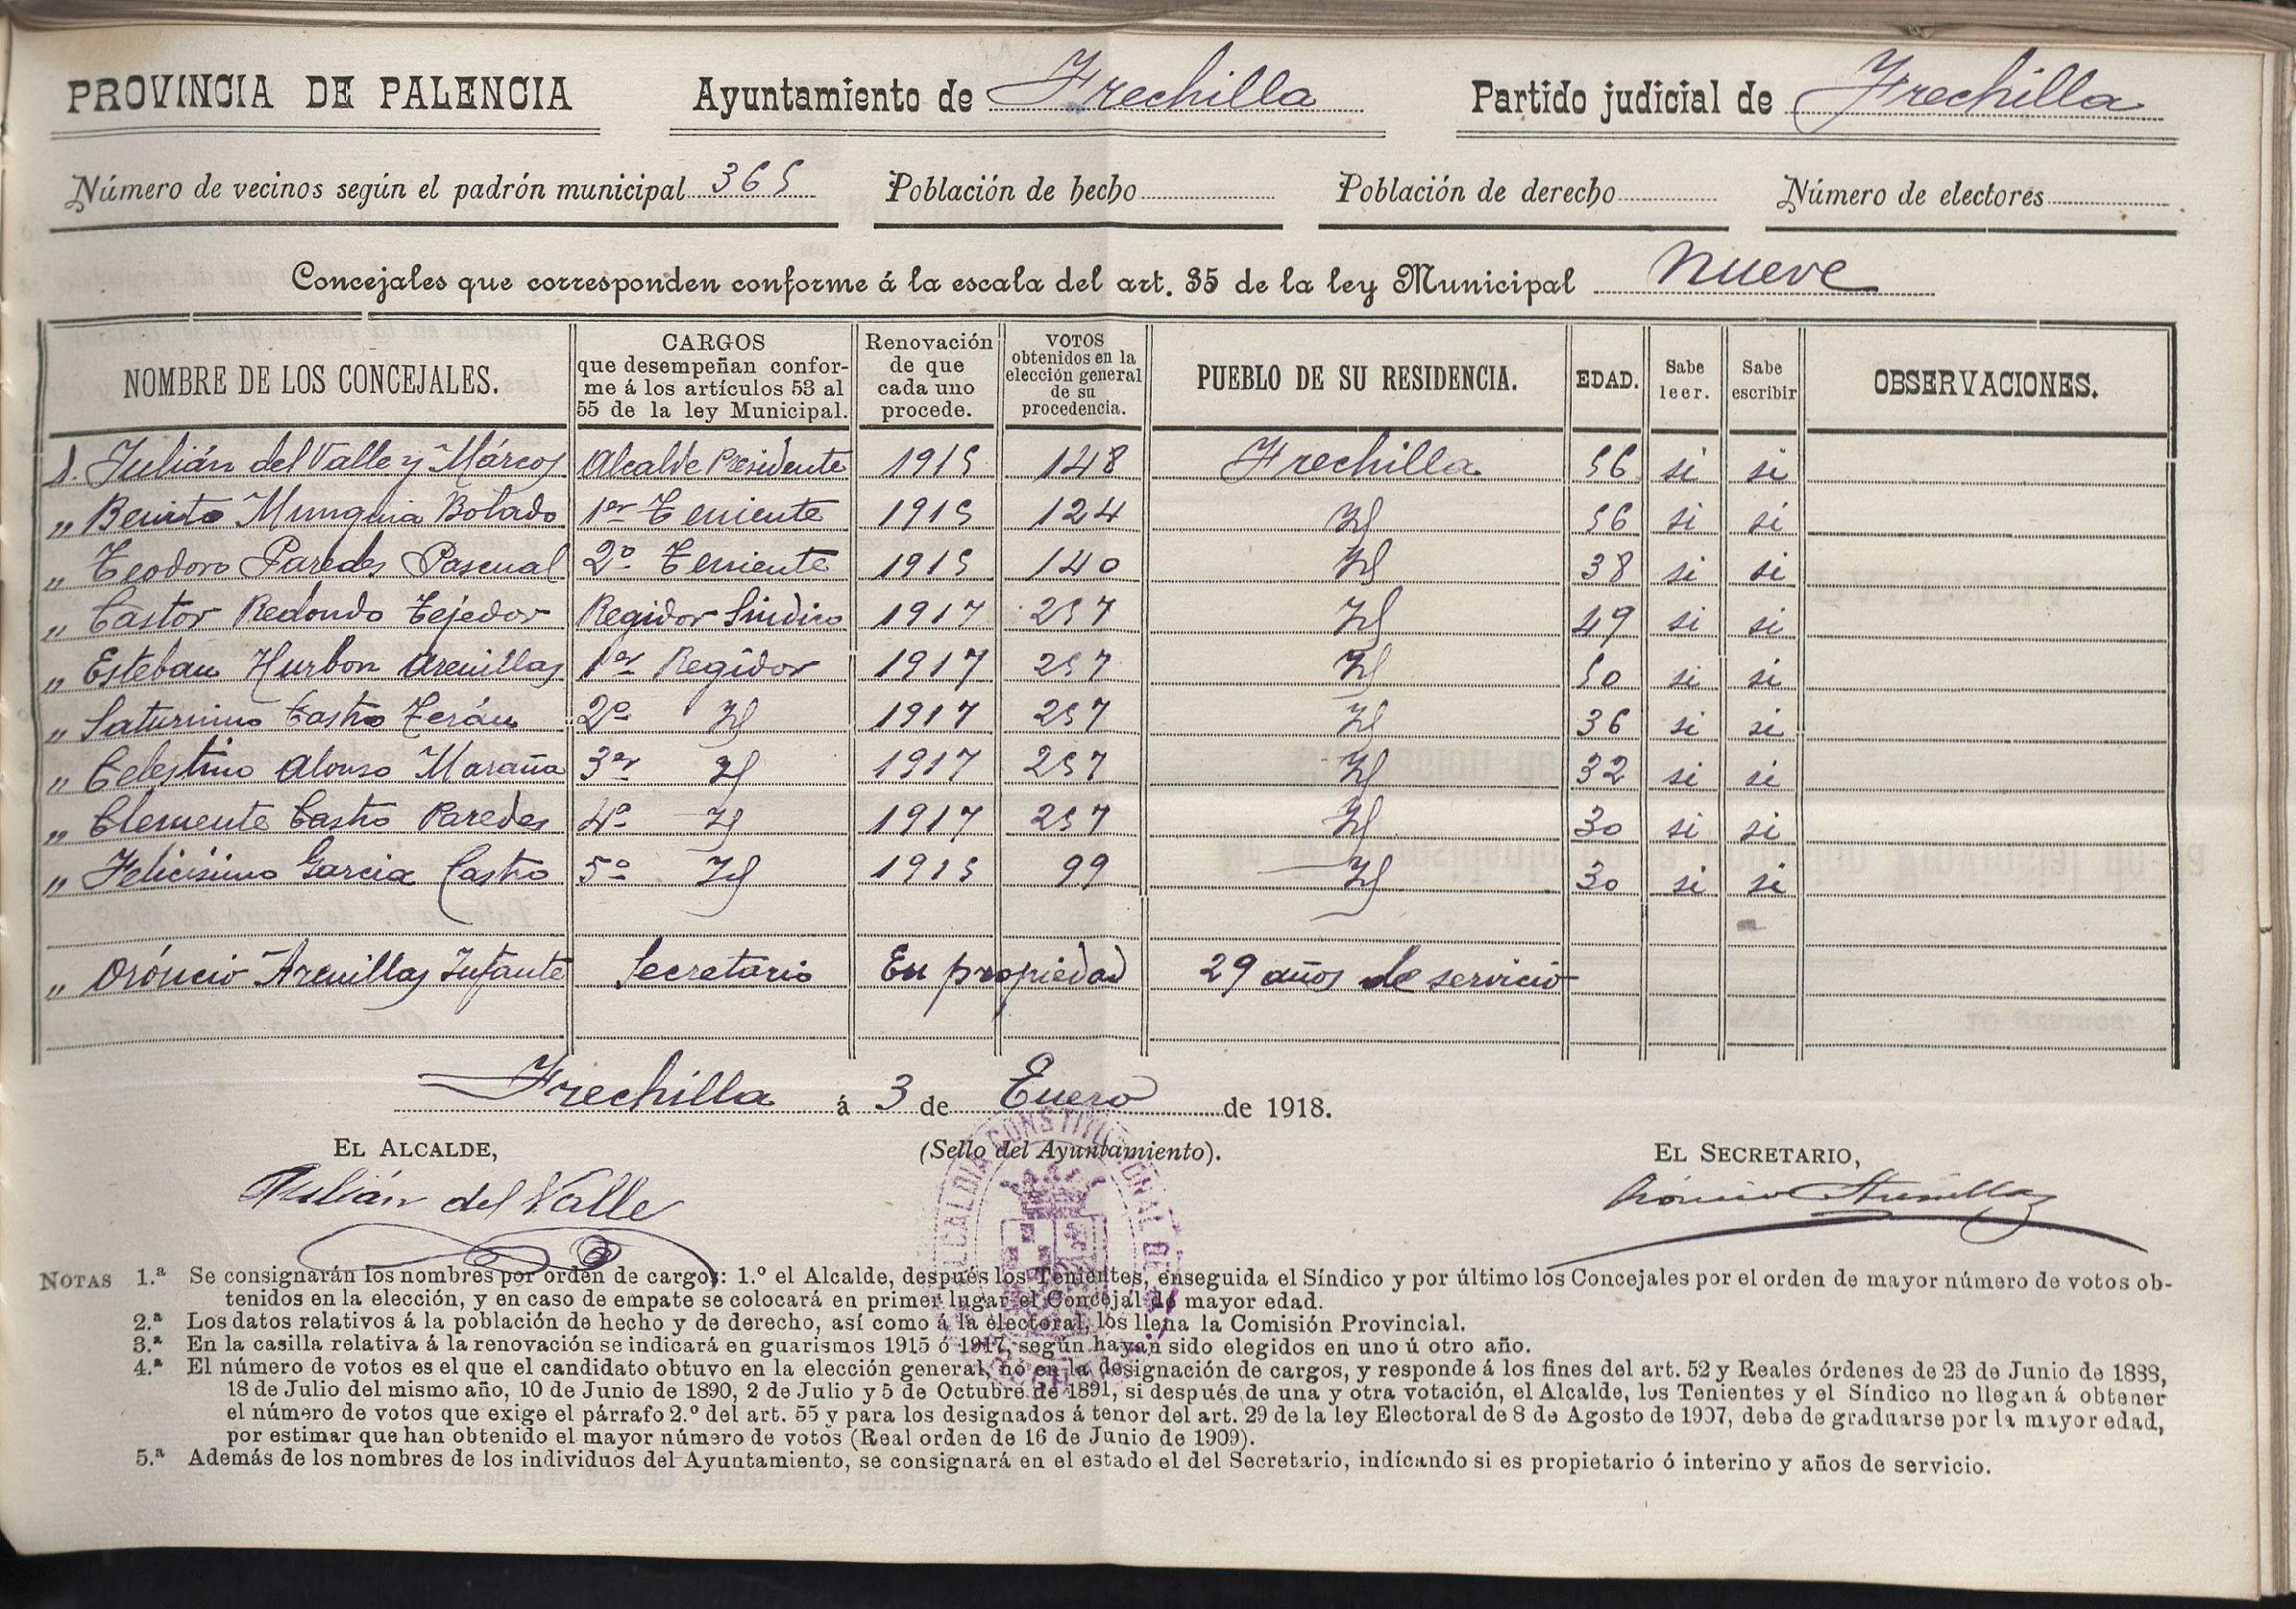 PROVINCIA DE PALENCIA Ayuntamiento de Frechilla Partido judicial de Frechilla
Número de vecinos según el padrón municipal 365 Población de hecho Población de derecho Número de electores
Concejales que corresponden conforme á la escala del art. 35 de la ley Municipal nueve
NOMBRE DE LOS CONCEJALES. CARGOS que desempeñan confor-me á los artículos 53 al 55 de la ley Municipal. Renovación de que cada uno procede. VOTOS obtenidos en la elección general de su procedencia. PUEBLO DE SU RESIDENCIA. EDAD. Sabe leer. Sabe escribir OBSERVACIONES.
D. Julián del Valle y Márcos Alcalde Presidente 1915 148 Frechilla 56 si si
" Benito Munguia Botado 1er Teniente 1915 124 Id 56 si si
" Teodoro Paredes Pascual 2º Teniente 1915 140 Id 38 si si
" Castor Redondo Tejedor Regidor Sindico 1917 257 Id 49 si si
" Esteban Hurbon Arenillas 1er Regidor 1917 257 Id 50 si si
" Saturnino Castro Terán 2º Id 1917 257 Id 36 si si
" Celestino Alonso Maraña 3er Id 1917 257 Id 32 si si
" Clemente Castro Paredes 4º Id 1917 257 Id 30 si si
" Felicisimo Garcia Castro 5º Id 1915 99 Id 30 si si
" Oróncio Arenillas Infante Secretario En propiedad 29 años de servicio
Frechilla á 3 de Enero de 1918.
EL ALCALDE, (Sello del Ayuntamiento). EL SECRETARIO,
Julián del Valle ALCALDIA CONSTITUCIONAL DE Oróncio Arenillas
NOTAS 1.ª Se consignarán los nombres por orden de cargos: 1.º el Alcalde, después los Tenientes, enseguida el Síndico y por último los Concejales por el orden de mayor número de votos ob-
tenidos en la elección, y en caso de empate se colocará en primer lugar el Concejal de mayor edad.
2.ª Los datos relativos á la población de hecho y de derecho, así como á la electoral, los llena la Comisión Provincial.
3.ª En la casilla relativa á la renovación se indicará en guarismos 1915 ó 1917, según hayan sido elegidos en uno ú otro año.
4.ª El número de votos es el que el candidato obtuvo en la elección general, no en la designación de cargos, y responde á los fines del art. 52 y Reales órdenes de 23 de Junio de 1888,
18 de Julio del mismo año, 10 de Junio de 1890, 2 de Julio y 5 de Octubre de 1891, si después de una y otra votación, el Alcalde, los Tenientes y el Síndico no llegan á obtener
el número de votos que exige el párrafo 2.º del art. 55 y para los designados á tenor del art. 29 de la ley Electoral de 8 de Agosto de 1907, debe de graduarse por la mayor edad,
por estimar que han obtenido el mayor número de votos (Real orden de 16 de Junio de 1909).
5.ª Además de los nombres de los individuos del Ayuntamiento, se consignará en el estado el del Secretario, indicando si es propietario ó interino y años de servicio.